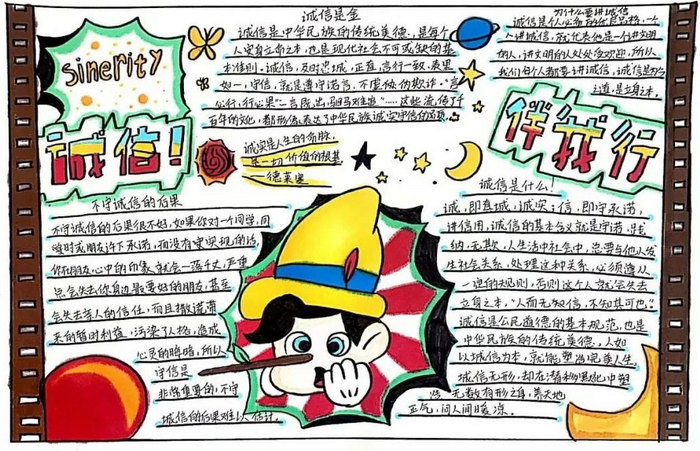 sinerity
诚信！
伴我行
诚信是金
诚信是中华民族的传统美德，是每个
人安身立命之本，也是现代社会不可或缺的基
本准则。诚信，及时忠诚，正直，言行一致，表里
如一，守信，就是遵守诺言，不虚伪欺诈。“言
必行，行必果”“一言既出，驷马难追”……这些流传了
百年的文化，都形象表达了中华民族诚实守信的品质。
为什么要讲诚信
诚信是人必备的优良品格，一个
人讲诚信，就代表他是一个讲文明
的人，讲文明的人处处受欢迎，所以，
我们每个人都要讲诚信，诚信是为人
之道，是立身之本。
诚实是人生的命脉，
是一切价值的根基
——德莱塞
不守诚信的后果
不守诚信的后果很不好，如果你对一个同学，同
时或朋友许下承诺，而没有实现的话，
你在朋友心中的印象就会一落千丈，严重
点会失去你身边最要好的朋友，甚至
会失去亲人的信任，而且撒谎带
来的暂时利益，污染了人格，造成
心灵的晦暗，所以
守信是
非常重要的，不守
诚信的后果难以估计。
诚信是什么！
诚，即真诚，诚实；信，即守承诺，
讲信用，诚信的基本含义就是守诺，
无欺，人生活中社会中，总要与他人发
生社会关系，处理这种关系，必须遵从
一定的规则，否则这个人就会失去
立身之本，“人而无知信，不知其可也”
诚信是公民道德的基本规范，也是
中华民族的传统美德，人如
以诚信为本，就能塑造完美人生
诚信无形，却在潜移默化中塑
造无数有形之身，养天地
正气，问人间暖凉。